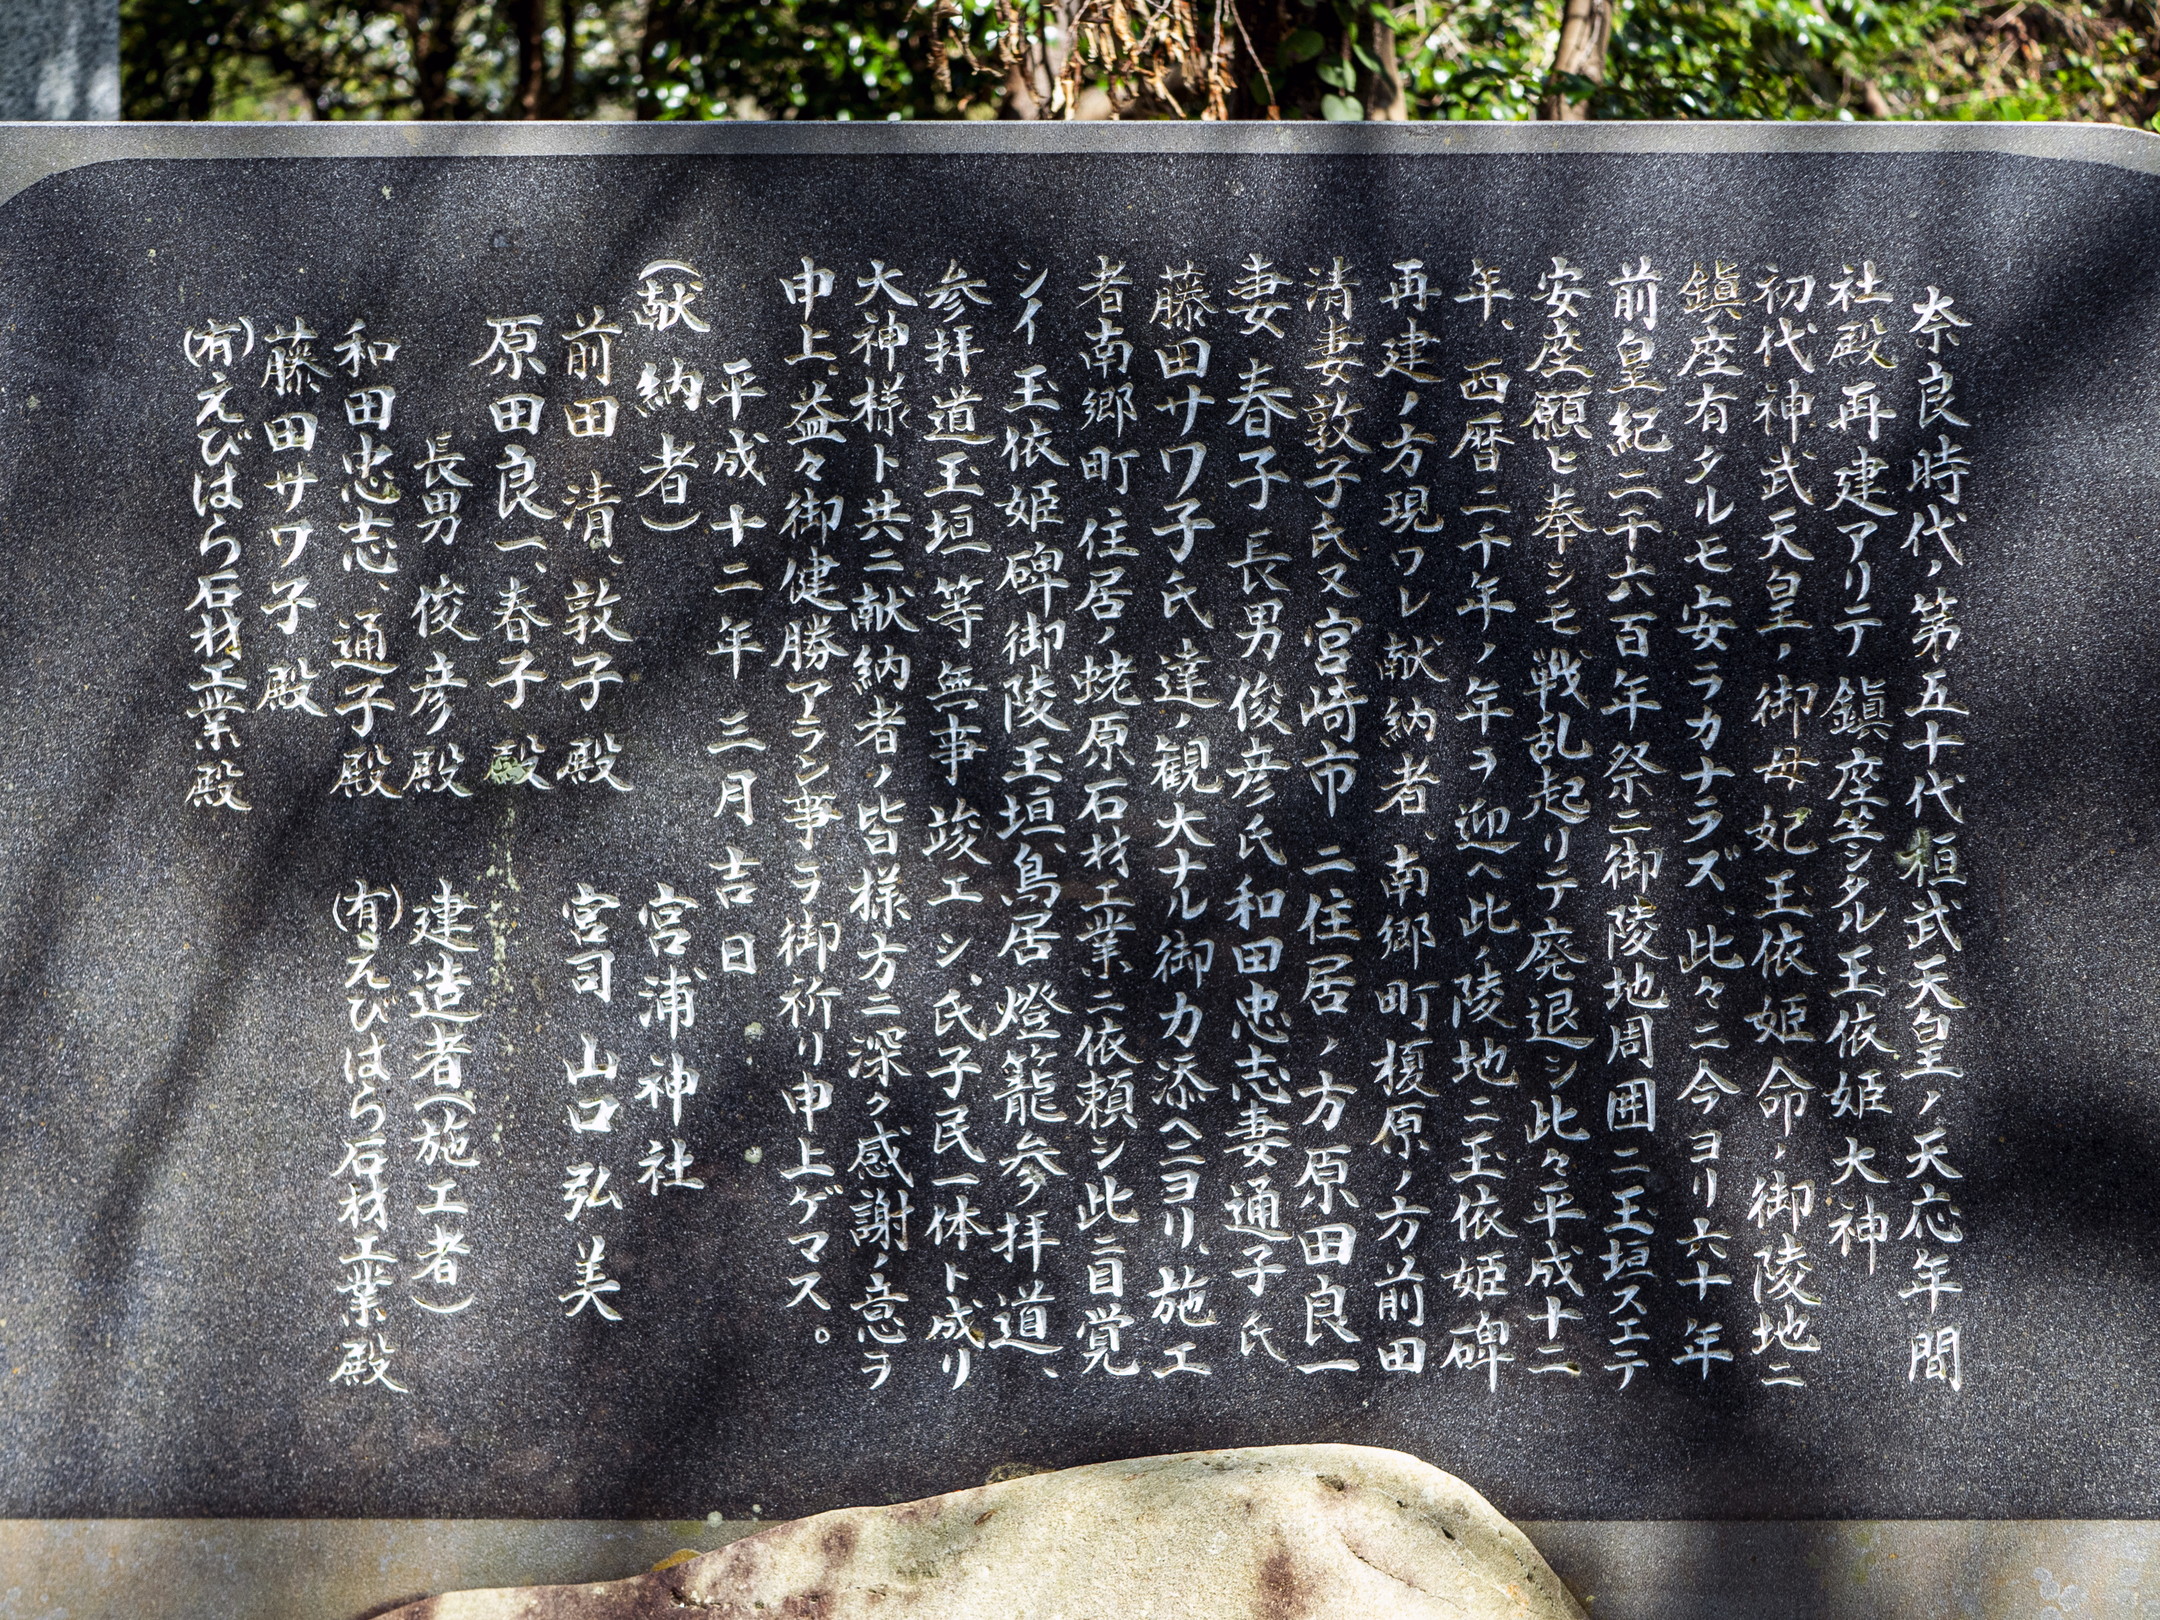 奈良時代、第五十代桓武天皇ノ天応年間
社殿再建アリテ鎮座坐シタル玉依姫大神
初代神武天皇ノ御母妃玉依姫命ノ御陵地ニ
鎮座有タルモ安ラカナラズ、此々ニ今ヨリ六十年
前皇紀二千六百年祭ニ御陵地周囲ニ玉垣スエテ
安座願ヒ奉シモ戦乱起リテ廃退シ此々平成十二
年、西暦二千年ノ年ヲ迎ヘ此ノ陵地ニ玉依姫碑
再建ノ方現ワレ献納者、南郷町榎原ノ方前田
清妻敦子氏又宮崎市ニ住居ノ方原田良一
妻春子長男俊彦氏和田忠志妻通子氏
藤田サワ子氏達ノ観大ナル御力添ヘニヨリ、施工
者南郷町住居ノ蛯原石材工業ニ依頼シ此ニ目覚
シイ玉依姫碑御陵玉垣、鳥居燈籠参拝道、
参拝道玉垣等無事竣エシ、氏子民一体ト成リ
大神様ト共ニ献納者ノ皆様方ニ深ク感謝ノ意ヲ
申上、益々御健勝アラン事ヲ御祈リ申上ゲマス。
平成十二年三月吉日
(献納者)
宮浦神社
前田清、敦子殿
宮司山口弘美
原田良一、春子殿
長男俊彦殿
建造者(施工者)
和田忠志、通子殿
(有)えびはら石材工業殿
藤田サワ子殿
(有)えびはら石材工業殿